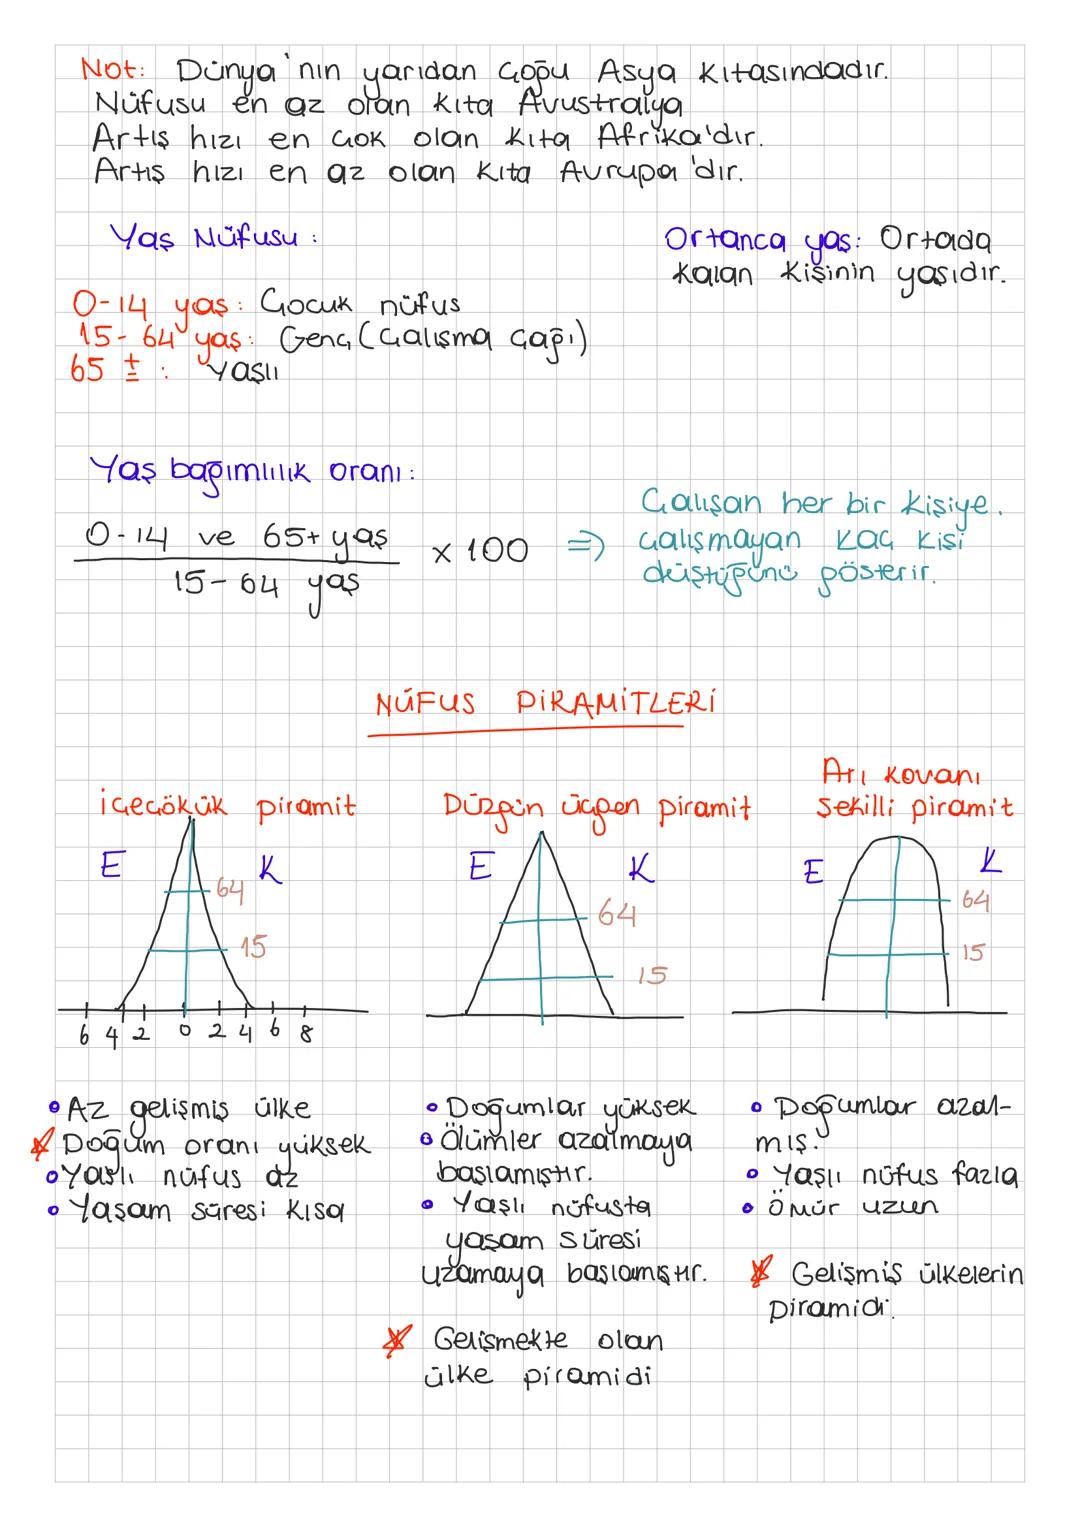 Not: Dünya'nın yarıdan çoğu Asya Kıtasındadır.
Nüfusu en az olan kıta Avustralya
Artış hızı en çok olan kıta Afrika'dır.
Artış hızı en az olan kıta Avrupa'dır.
Yaş Nüfusu:
Ortanca yaş: Ortada
kalan kişinin yaşıdır.
0-14 yaş: Çocuk nüfus
15-64 yaş: Genç (Çalışma çağı)
65 ±: Yaşlı
Yaş bağımlılık oranı:
0-14 ve 65+ yaş
15-64 yaş
x 100 ⇒
Çalışan her bir kişiye.
çalışmayan kaç kişi
düştüğünü gösterir.
NÜFUS PİRAMİTLERİ
içeçökük piramit
Düzgün üçgen piramit
Arı kovanı
şekilli piramit
E K
64
15
6 4 2 0 2 4 6 8
E K
64
15
E K
64
15
• Az gelişmiş ülke
Doğum oranı yüksek
• Yaşlı nüfus az
• Yaşam süresi kısa
• Doğumlar yüksek
• Ölümler azalmaya
başlamıştır.
• Yaşlı nüfusta
yaşam süresi
uzamaya başlamıştır.
Gelişmekte olan
ülke piramidi
• Doğumlar azal-
mış.
• Yaşlı nüfus fazla
• Ömür uzun
Gelişmiş ülkelerin
piramidi.